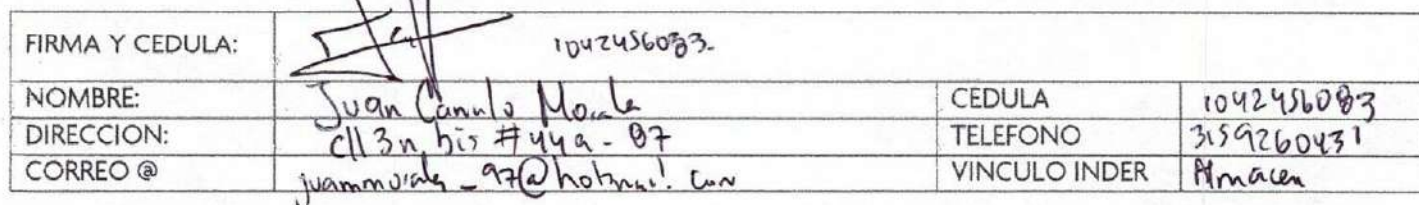 FIRMA Y CEDULA: 1042456083.
NOMBRE: Juan Camilo CEDULA 1042456083
DIRECCION: cll 3n bis #44a - 87 TELEFONO 3159260431
CORREO @ VINCULO INDER Almacen